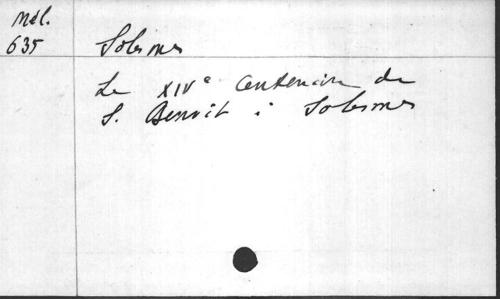 Mél.
635
Solesmes
Le XIVe Centenaire de
S. Benoit à Solesmes